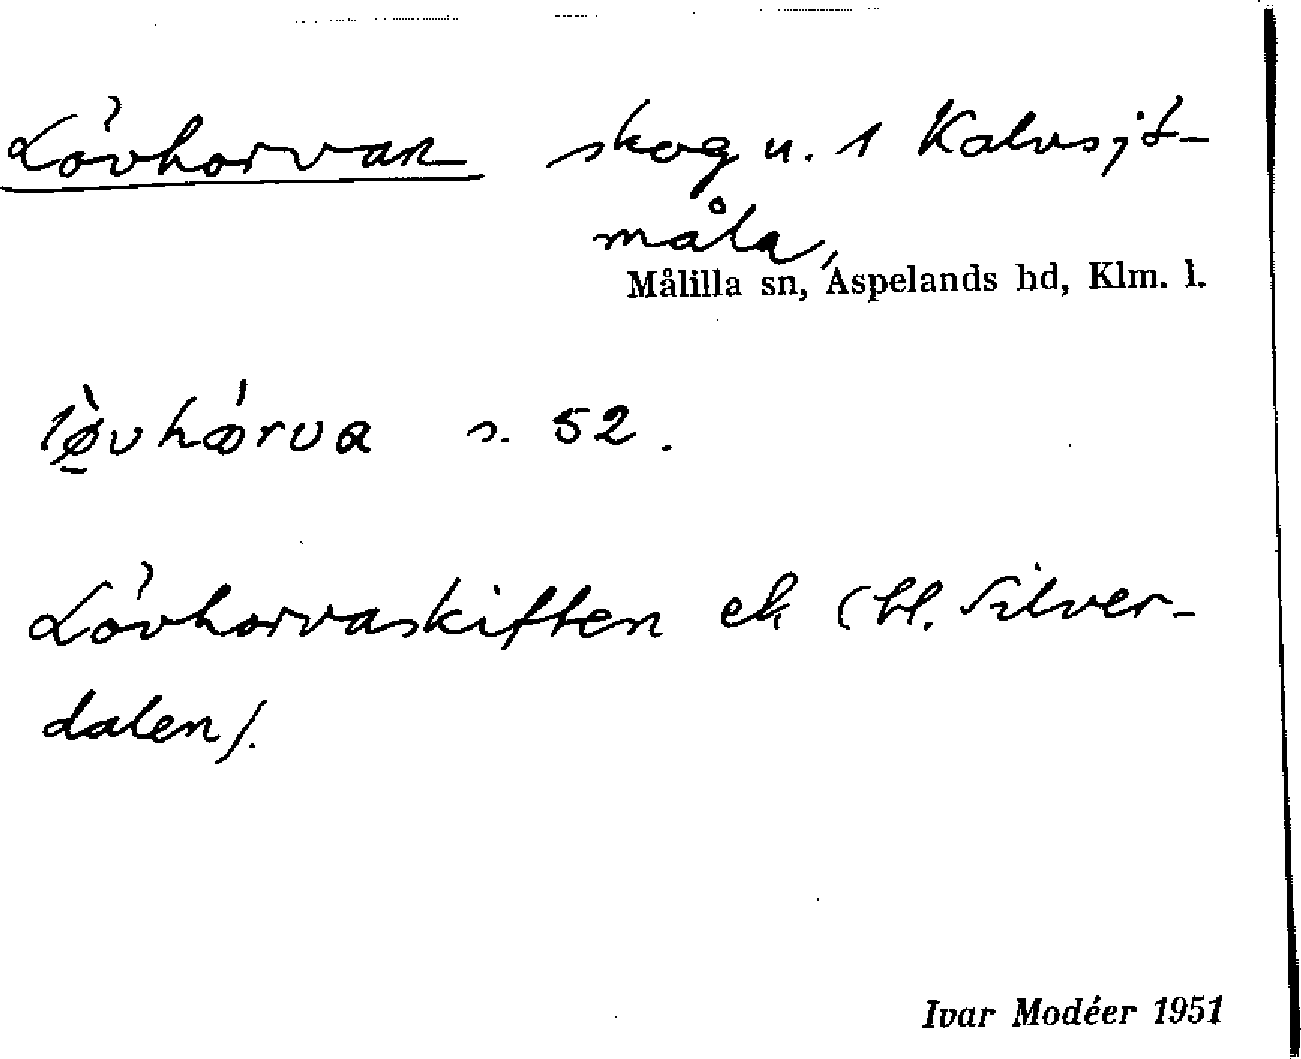 Lövhorvan skog u. 1 Kalvsjö-
måla,
Målilla sn, Aspelands hd, Klm. l.
s. 52.
Lövhorvaskiften ek (bl. Silver-
dalen).
Ivar Modéer 1951